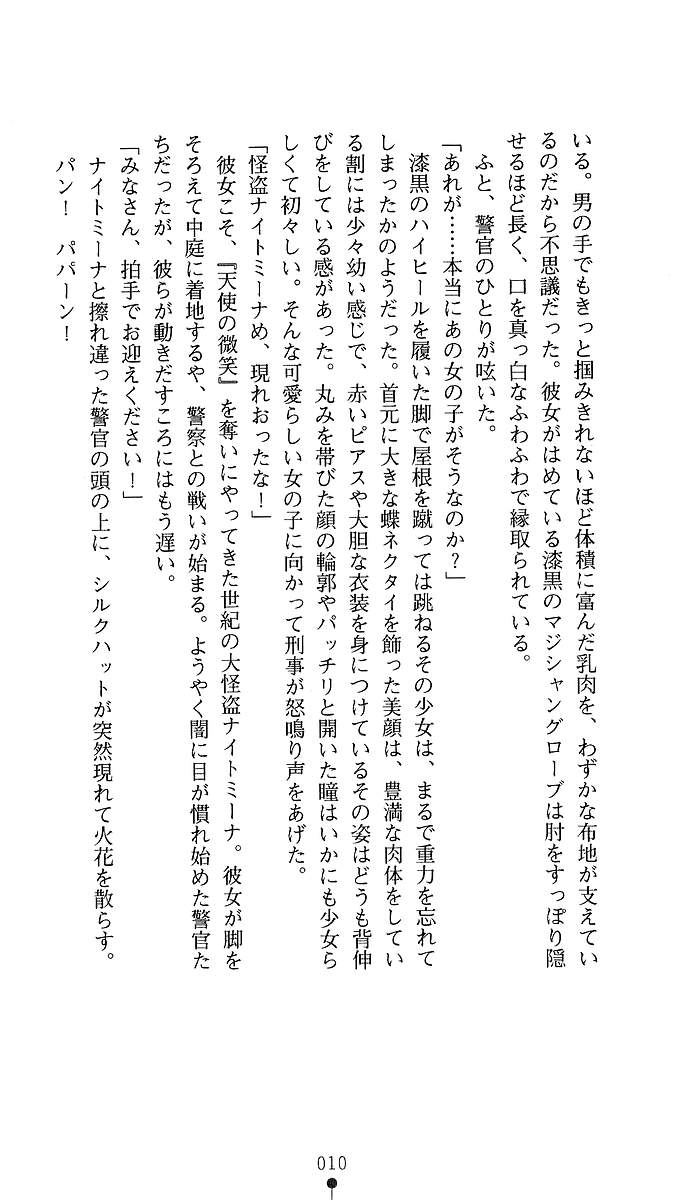 いる。男の手でもきっと掴みきれないほど体積に富んだ乳肉を、わずかな布地が支えてい
るのだから不思議だった。彼女がはめている漆黒のマジシャングローブは肘をすっぽり隠
せるほど長く、口を真っ白なふわふわで縁取られている。
ふと、警官のひとりが呟いた。
「あれが……本当にあの女の子がそうなのか?」
漆黒のハイヒールを履いた脚で屋根を蹴っては跳ねるその少女は、まるで重力を忘れて
しまったかのようだった。首元に大きな蝶ネクタイを飾った美顔は、豊満な肉体をしてい
る割には少々幼い感じで、赤いピアスや大胆な衣装を身につけているその姿はどうも背伸
びをしている感があった。丸みを帯びた顔の輪郭やパッチリと開いた瞳はいかにも少女ら
しくて初々しい。そんな可愛らしい女の子に向かって刑事が怒鳴り声をあげた。
「怪盗ナイトミーナめ、現れおったな!」
彼女こそ、『天使の微笑』を奪いにやってきた世紀の大怪盗ナイトミーナ。彼女が脚を
そろえて中庭に着地するや、警察との戦いが始まる。ようやく闇に目が慣れ始めた警官た
ちだったが、彼らが動きだすころにはもう遅い。
「みなさん、拍手でお迎えください!」
ナイトミーナと擦れ違った警官の頭の上に、シルクハットが突然現れて火花を散らす。
パン! パパーン!
010